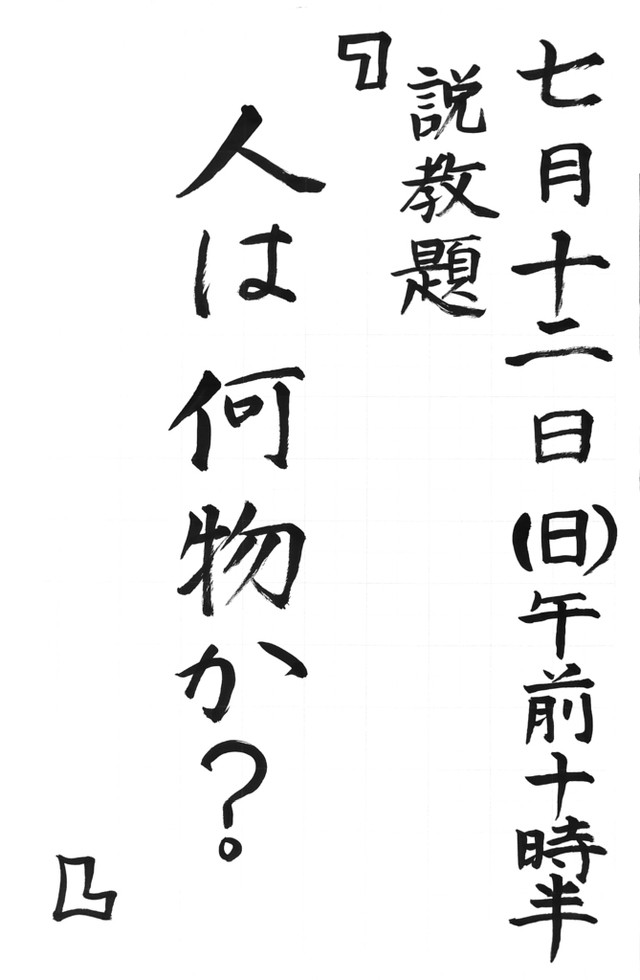 七月十二日(日)午前十時半
説教題
『人は何物か?』